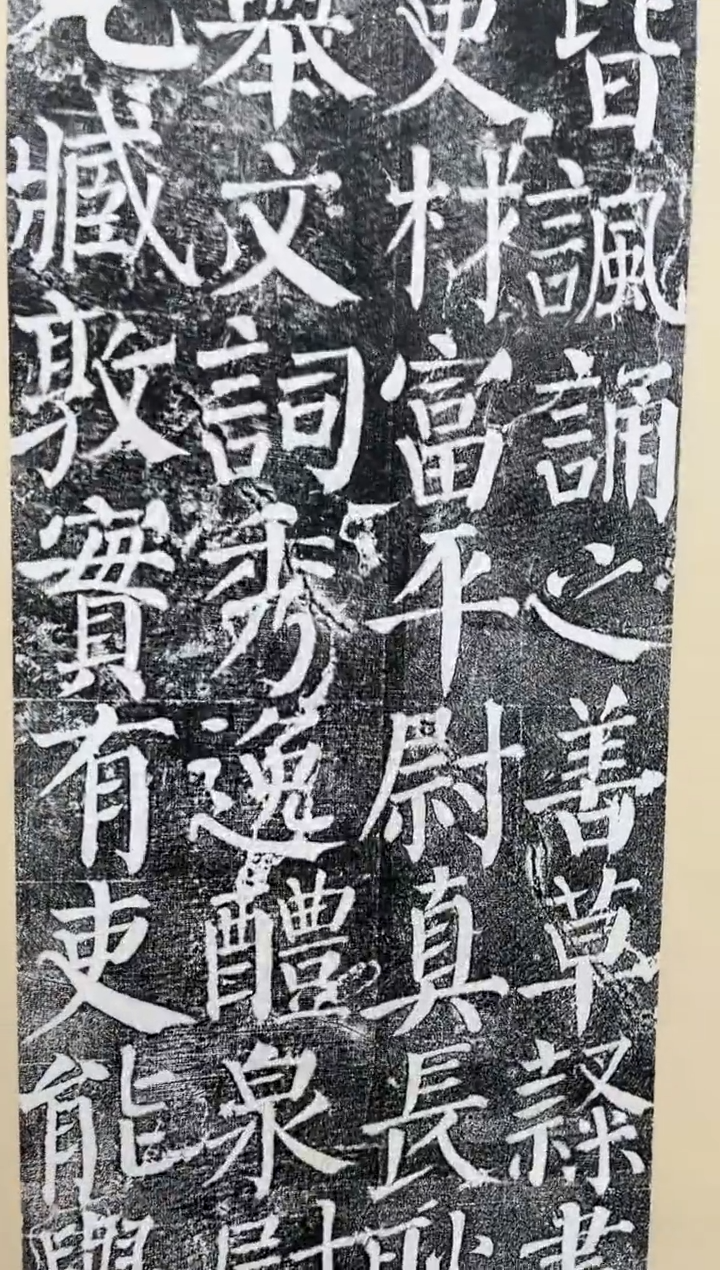 皆諷誦之善草隸書
吏材富平尉真長耽
舉文詞秀逸醴泉尉
臧敦實有吏能舉